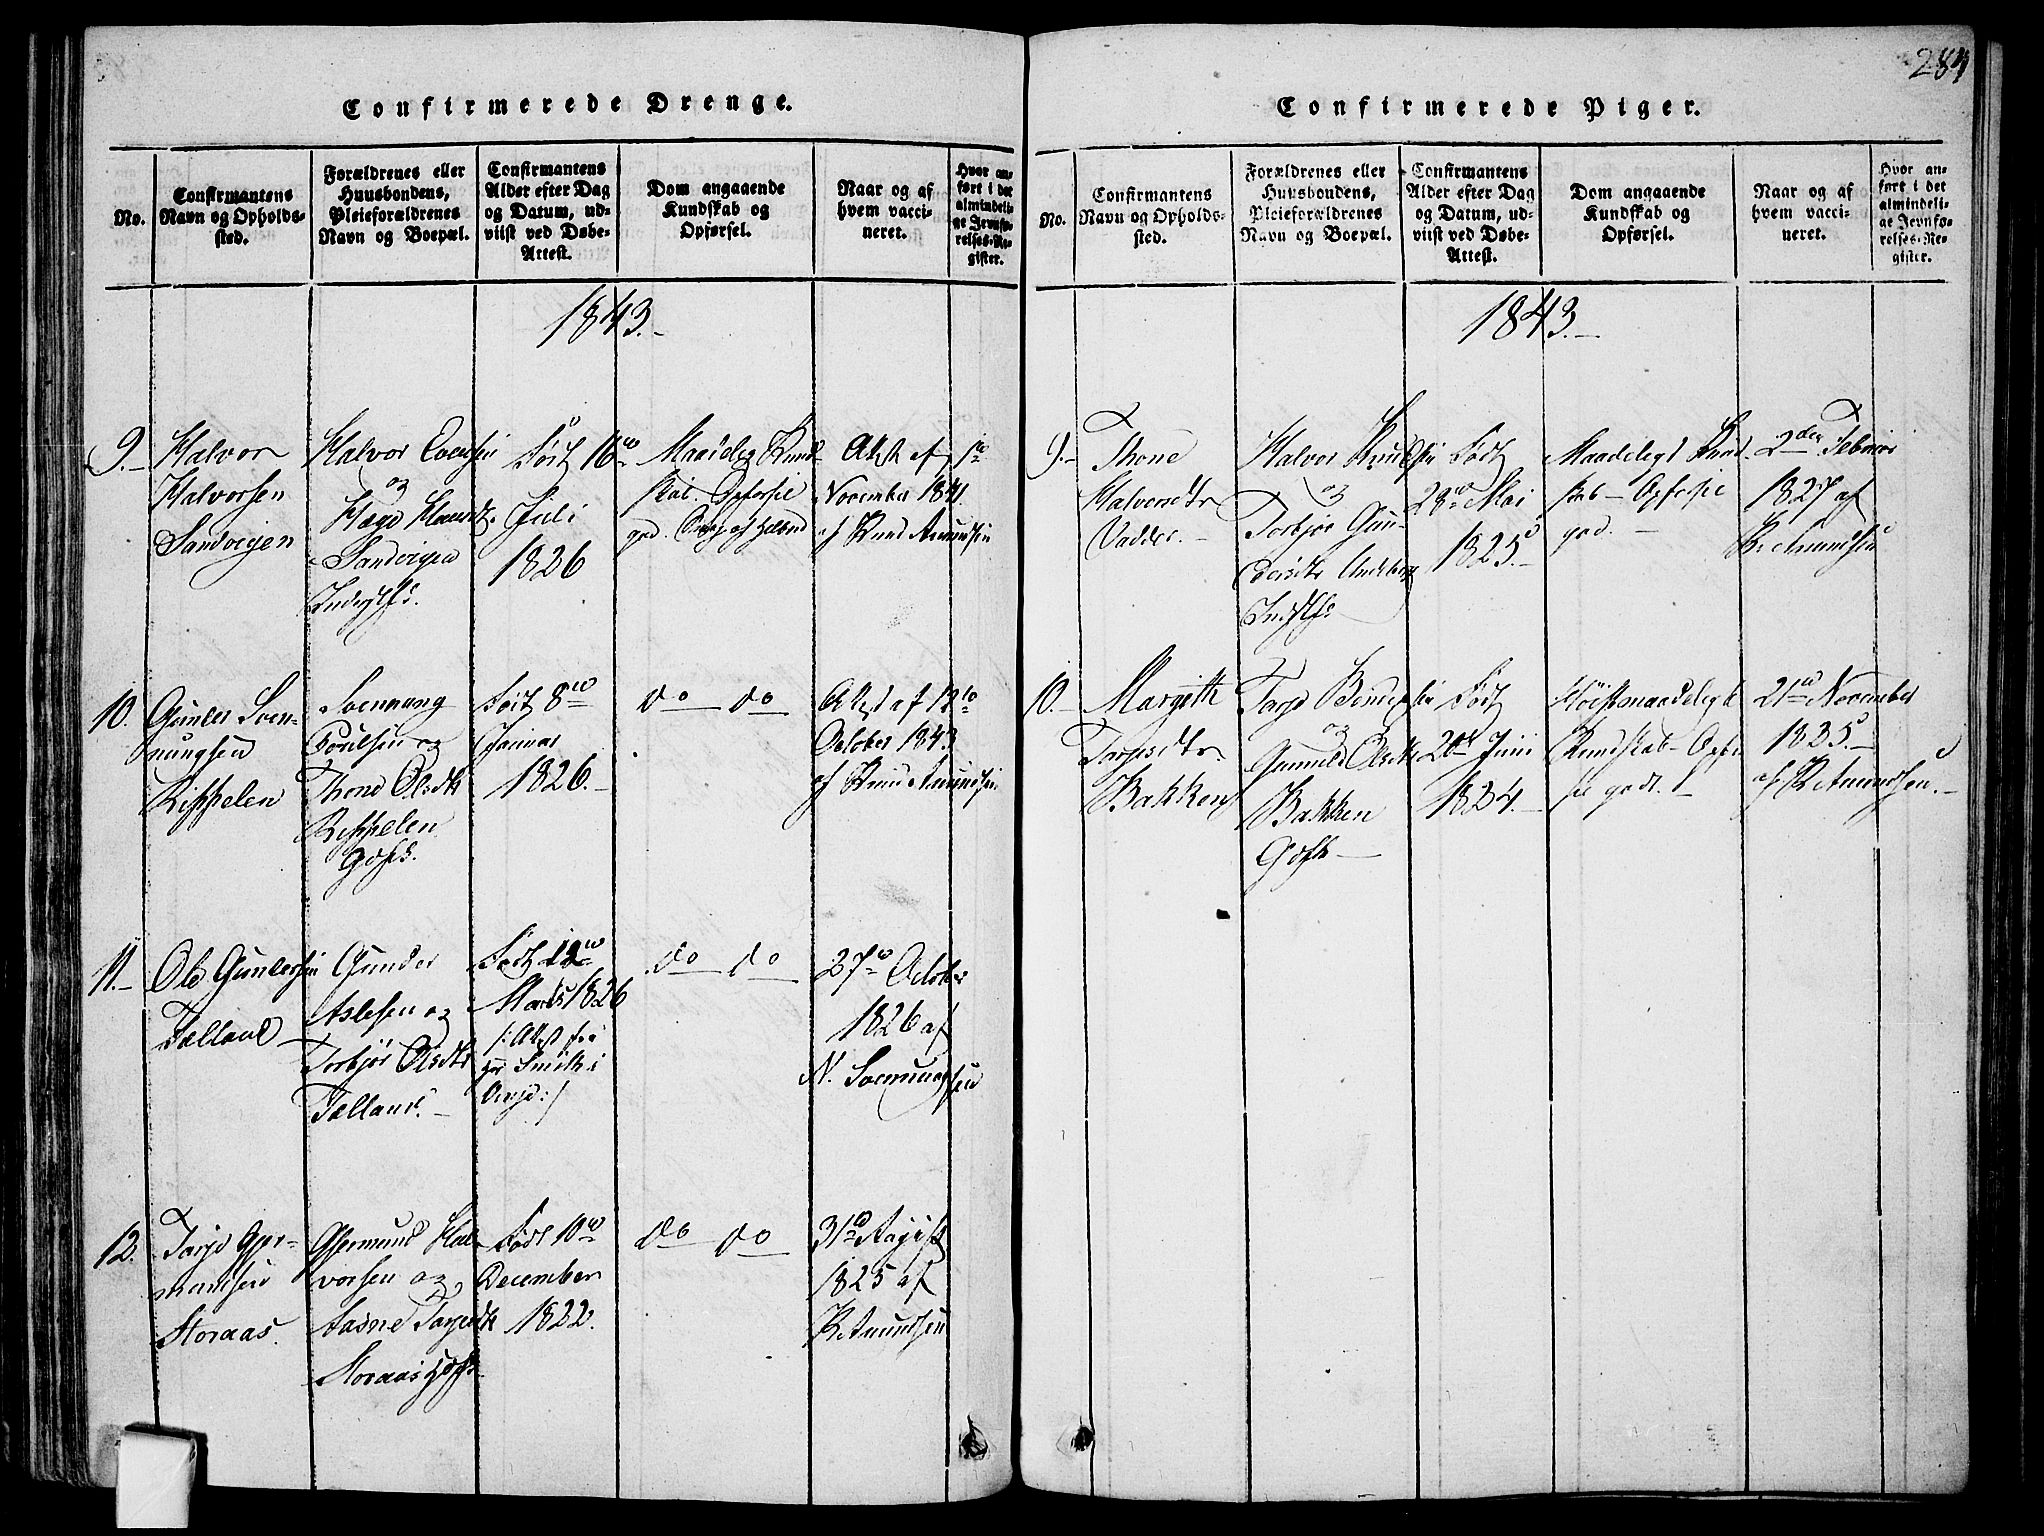 Confirmerede Drenge.
No.
Confirmantens
Navn og Opholds-
sted.
Forældrenes eller
Huusbondens,
Pleieforældrenes
Navn og Boepæl.
Confirmantens
Alder efter Dag
og Datum, ud-
viist ved Døbe-
Attest.
Dom angaaende
Kundskab og
Opførsel.
Naar og af
hvem vacci-
neret.
Hvor an-
ført i det
almindeli-
ge Jevnfø-
relses-Re-
gister.
1843.-
9.-
Halvor
Halvorsen
Sandvigen
Halvor Evensen
og
Sandvigen
Født 16de
Juli
1826
Maadelig Kund-
skab. Opførsel
god.
Attest af 1de
November 1841.
af Knud Amundsen
10.
Gunder Sven-
nungsen
Rippelen
Svennung
Poulsen og
Thone Olsdtr
Rippelen
Født 8de
Januar
1826.-
do do
Attest af 12te
October 1843
af Knud Amundsen
11.-
Ole Gundersen
Tælland
Gunder
Aslesen og
Torbjør Olsdtr
Tælland.-
Født 12te
Marts 1826
/: Attest fra
Hr Smith i
do do
27de October
1826 af
N. Svennungsen
12.
Tarje Gjer-
mundsen
Storaas.
Gjermund Hal-
vorsen og
Aasne Tarjesdtr
Storaas
Født 10de
December
1822.
do do
31te August
1825 af
K. Amundsen
284
Confirmerede Piger.
No.
Confirmantens
Navn og Opholds-
sted.
Forældrenes eller
Huusbondens,
Pleieforældrenes
Navn og Boepæl.
Confirmantens
Alder efter Dag
og Datum, ud-
viist ved Døbe-
Attest.
Dom angaaende
Kundskab og
Opførsel.
Naar og af
hvem vacci-
neret.
Hvor an-
ført i det
almindeli-
ge Jevnfø-
relses-Re-
gister.
1843.-
9.-
Thone
Halvorsdtr
Vadder.-
Halvor Knudsen
og
Torbjør Gun-
dersdtr
Født
28de Mai
1825.-
Maadeligt Kund-
skab - Opførsel
god.-
2den Februar
1827 af
K. Amundsen
10.-
Margith
Tarjesdtr
Bakken
Tarje
og
Gunild Olsdtr
Bakken
Født
20de Juni
1824.-
Høistmaadeligt
Kundskab - Opfør-
sel godt.
21de November
1835.-
af K. Amundsen.-